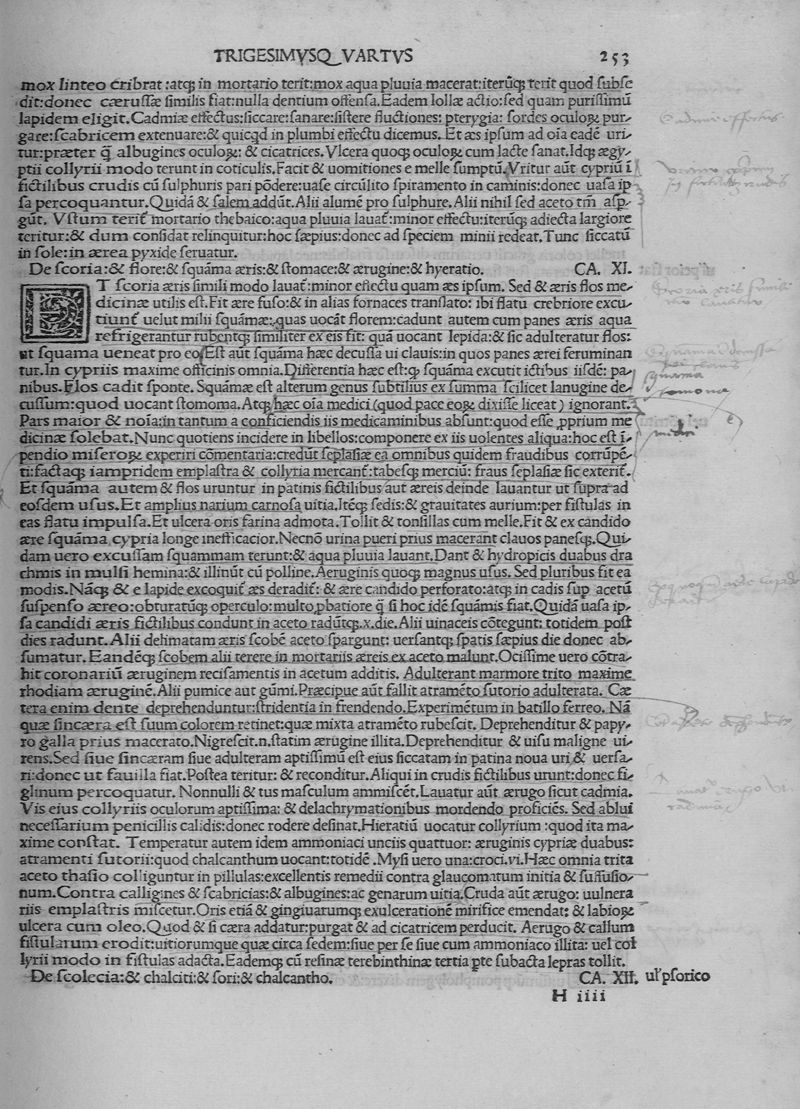 TRIGESIMVSQVARTVS 253
mox linteo cribrat :atq; in mortario terit:mox aqua pluuia macerat:iterũq; terit quod subse
dit:donec cærussæ similis fiat:nulla dentium offensa.Eadem lollæ actio:sed quam purissimũ
lapidem eligit.Cadmiæ effectus:siccare:sanare:sistere fluctiones: pterygia: sordes oculoꝝ pur
gare:scabricem extenuare:& quicqd in plumbi effectu dicemus. Et æs ipsum ad oĩa eadẽ uri
tur:præter q̃ albugines oculoꝝ: & cicatrices. Vlcera quoq; oculoꝝ cum lacte sanat.Idq; ægy
ptii collyrii modo terunt in coticulis.Facit & uomitiones e melle sumptũ.Vritur aũt cypriũ ĩ
fictilibus crudis cũ sulphuris pari põdere:uase circũlito spiramento in caminis:donec uasa ip
sa percoquantur.Quidã & salem addũt.Alii alumẽ pro sulphure.Alii nihil sed aceto tm̃ asp
gũt. Vstum terit mortario thebaico:aqua pluuia lauat:minor effectu:iterũq; adiecta largiore
teritur:& dum considat relinquitur:hoc sæpius:donec ad speciem minii redeat.Tunc siccatũ
in sole:in ærea pyxide seruatur.
De scoria:& flore:& squãma æris:& stomace:& ærugine:& hyeratio. CA. XI.
ET scoria æris simili modo lauat:minor effectu quam æs ipsum. Sed & æris flos me
dicinæ utilis est.Fit ære fuso:& in alias fornaces transłato: ibi flatu crebriore excu
tiunt uelut milii squãmæ:quas uocãt florem:cadunt autem cum panes æris aqua
refrigerantur rubentq; similiter ex eis fit: quã uocant lepida:& sic adulteratur flos:
ut squama ueneat pro eo.Est aũt squãma hæc decussa ui clauis:in quos panes ærei feruminan
tur.In cypriis maxime officinis omnia.Differentia hæc est:q; squãma excutit ictibus iisdẽ: pa
nibus.Flos cadit sponte. Squãmæ est alterum genus subtilius ex summa scilicet lanugine de
cussum:quod uocant stomoma.Atq; hæc oĩa medici (quod pace eoꝝ dixisse liceat) ignorant.
Pars maior & noĩa:in tantum a conficiendis iis medicaminibus absunt:quod esse ꝓprium me
dicinæ solebat.Nunc quotiens incidere in libellos:componere ex iis uolentes aliqua:hoc est ĩ
pendio miseroꝝ experiri cõmentaria:credũt seplasiæ ea omnibus quidem fraudibus corrupẽ
ti:factaq; iampridem emplastra & collyria mercant:tabesq; merciũ: fraus seplasiæ sic exterit.
Et squãma autem & flos uruntur in patinis fictilibus aut æreis deinde lauantur ut supra ad
eosdem usus.Et amplius narium carnosa uitia.Itẽq; sedis:& grauitates aurium:per fistulas in
eas flatu impulsa.Et ulcera oris farina admota.Tollit & tonsillas cum melle.Fit & ex candido
ære squãma cypria longe inefficacior.Necnõ urina pueri prius macerant clauos panesq;.Qui
dam uero excussam squammam terunt:& aqua pluuia lauant.Dant & hydropicis duabus dra
chmis in mulsi hemina:& illinũt cũ polline.Aeruginis quoq; magnus usus. Sed pluribus fit ea
modis.Nãq; & e lapide excoquit æs deradit: & ære candido perforato:atq; in cadis sup acetũ
suspenso æreo:obturatũq; operculo:multo ꝓbatiore q̃ si hoc idẽ squãmis fiat.Quidã uasa ip
sa candidi æris fictilibus condunt in aceto radũtq;.x.die.Alii uinaceis cõtegunt: totidem post
dies radunt.Alii delimatam æris scobẽ aceto spargunt: uersantq; spatis sæpius die donec ab
sumatur.Eandẽq; scobem alii terere in mortariis æreis ex aceto malunt.Ocissime uero cõtra
hit coronariũ æruginem recisamentis in acetum additis. Adulterant marmore trito maxime
rhodiam æruginẽ.Alii pumice aut gũmi.Præcipue aũt fallit atramẽto sutorio adulterata. Cæ
tera enim dente deprehenduntur:stridentia in frendendo.Experimẽtum in batillo ferreo. Nã
quæ sincæra est suum colorem retinet:quæ mixta atramẽto rubescit. Deprehenditur & papy
ro galla prius macerato.Nigrescit.n.statim ærugine illita.Deprehenditur & uisu maligne ui
rens.Sed siue sincæram siue adulteram aptissimũ est eius siccatam in patina noua uri & uersa
ri:donec ut fauilla fiat.Postea teritur: & reconditur.Aliqui in crudis fictilibus urunt:donec fi
glinum percoquatur. Nonnulli & tus masculum ammiscẽt.Lauatur aũt ærugo sicut cadmia.
Vis eius collyriis oculorum aptissima: & delachrymationibus mordendo proficiẽs. Sed ablui
necessarium penicillis calidis:donec rodere desinat.Hieratiũ uocatur collyrium :quod ita ma
xime constat. Temperatur autem idem ammoniaci unciis quattuor: æruginis cypriæ duabus:
atramenti sutorii:quod chalcanthum uocant:totidẽ .Mysi uero una:croci.vi.Hæc omnia trita
aceto thasio colliguntur in pillulas:excellentis remedii contra glaucomatum initia & suffusio
num.Contra calligines & scabricias:& albugines:ac genarum uitia.Cruda aũt ærugo: uulnera
riis emplastris miscetur.Oris etiã & gingiuarumq; exulcerationẽ mirifice emendat: & labioꝝ
ulcera cum oleo.Quod & si cæra addatur:purgat & ad cicatricem perducit. Aerugo & callum
fistularum erodit:uitiorumque quæ circa sedem:siue per se siue cum ammoniaco illita: uel col
lyrii modo in fistulas adacta.Eademq; cũ resinæ terebinthinæ tertia ꝑte subacta lepras tollit.
De scolecia:& chalciti:& sori:& chalcantho. CA. XII. ul psorico
H iiii